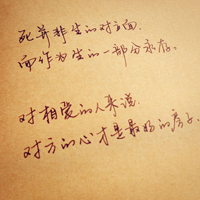 死并非生的对立面，
而作为生的一部分永存。
对相爱的人来说，
对方的心才是最好的房子。